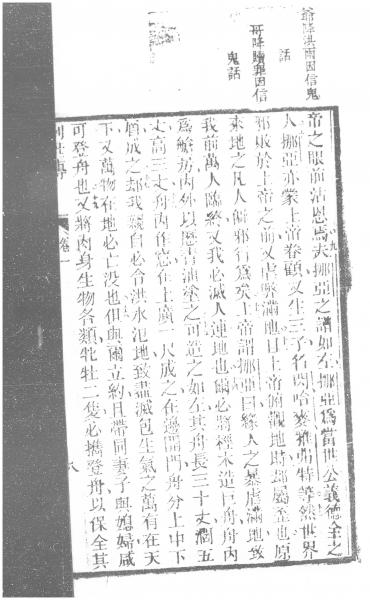 爺降洪雨因信鬼
話
哥降贖罪因信
鬼話
帝之眼前沾恩焉夫挪亞之譜如左挪亞為當世公義德全之
人挪亞亦蒙上帝眷顧又生三子名閃哈麥雅特等然世界
邪敗於上帝之前又虐弊滿地且上帝俯觀地時卻屬歪也原
來地之凡人偏邪行為矣上帝謂挪亞曰緣人之暴虐滿地致
我前萬人臨終又我必滅人連地也爾必將木造巨舟舟內
為艙房內外以瀝青油塗之可造之如左其舟長三十丈濶五
丈高三丈舟內作窓在上廣一尺成之在邊開門舟分上中下
層成之却我親自必令洪水氾地致盡滅包生氣之萬有在天
下又萬物在地必亡沒也但與爾立約且帶同妻子與媳婦咸
可登舟也又將肉身生物各類牝牡二隻必攜登舟以保全其
創世傳
卷一
八